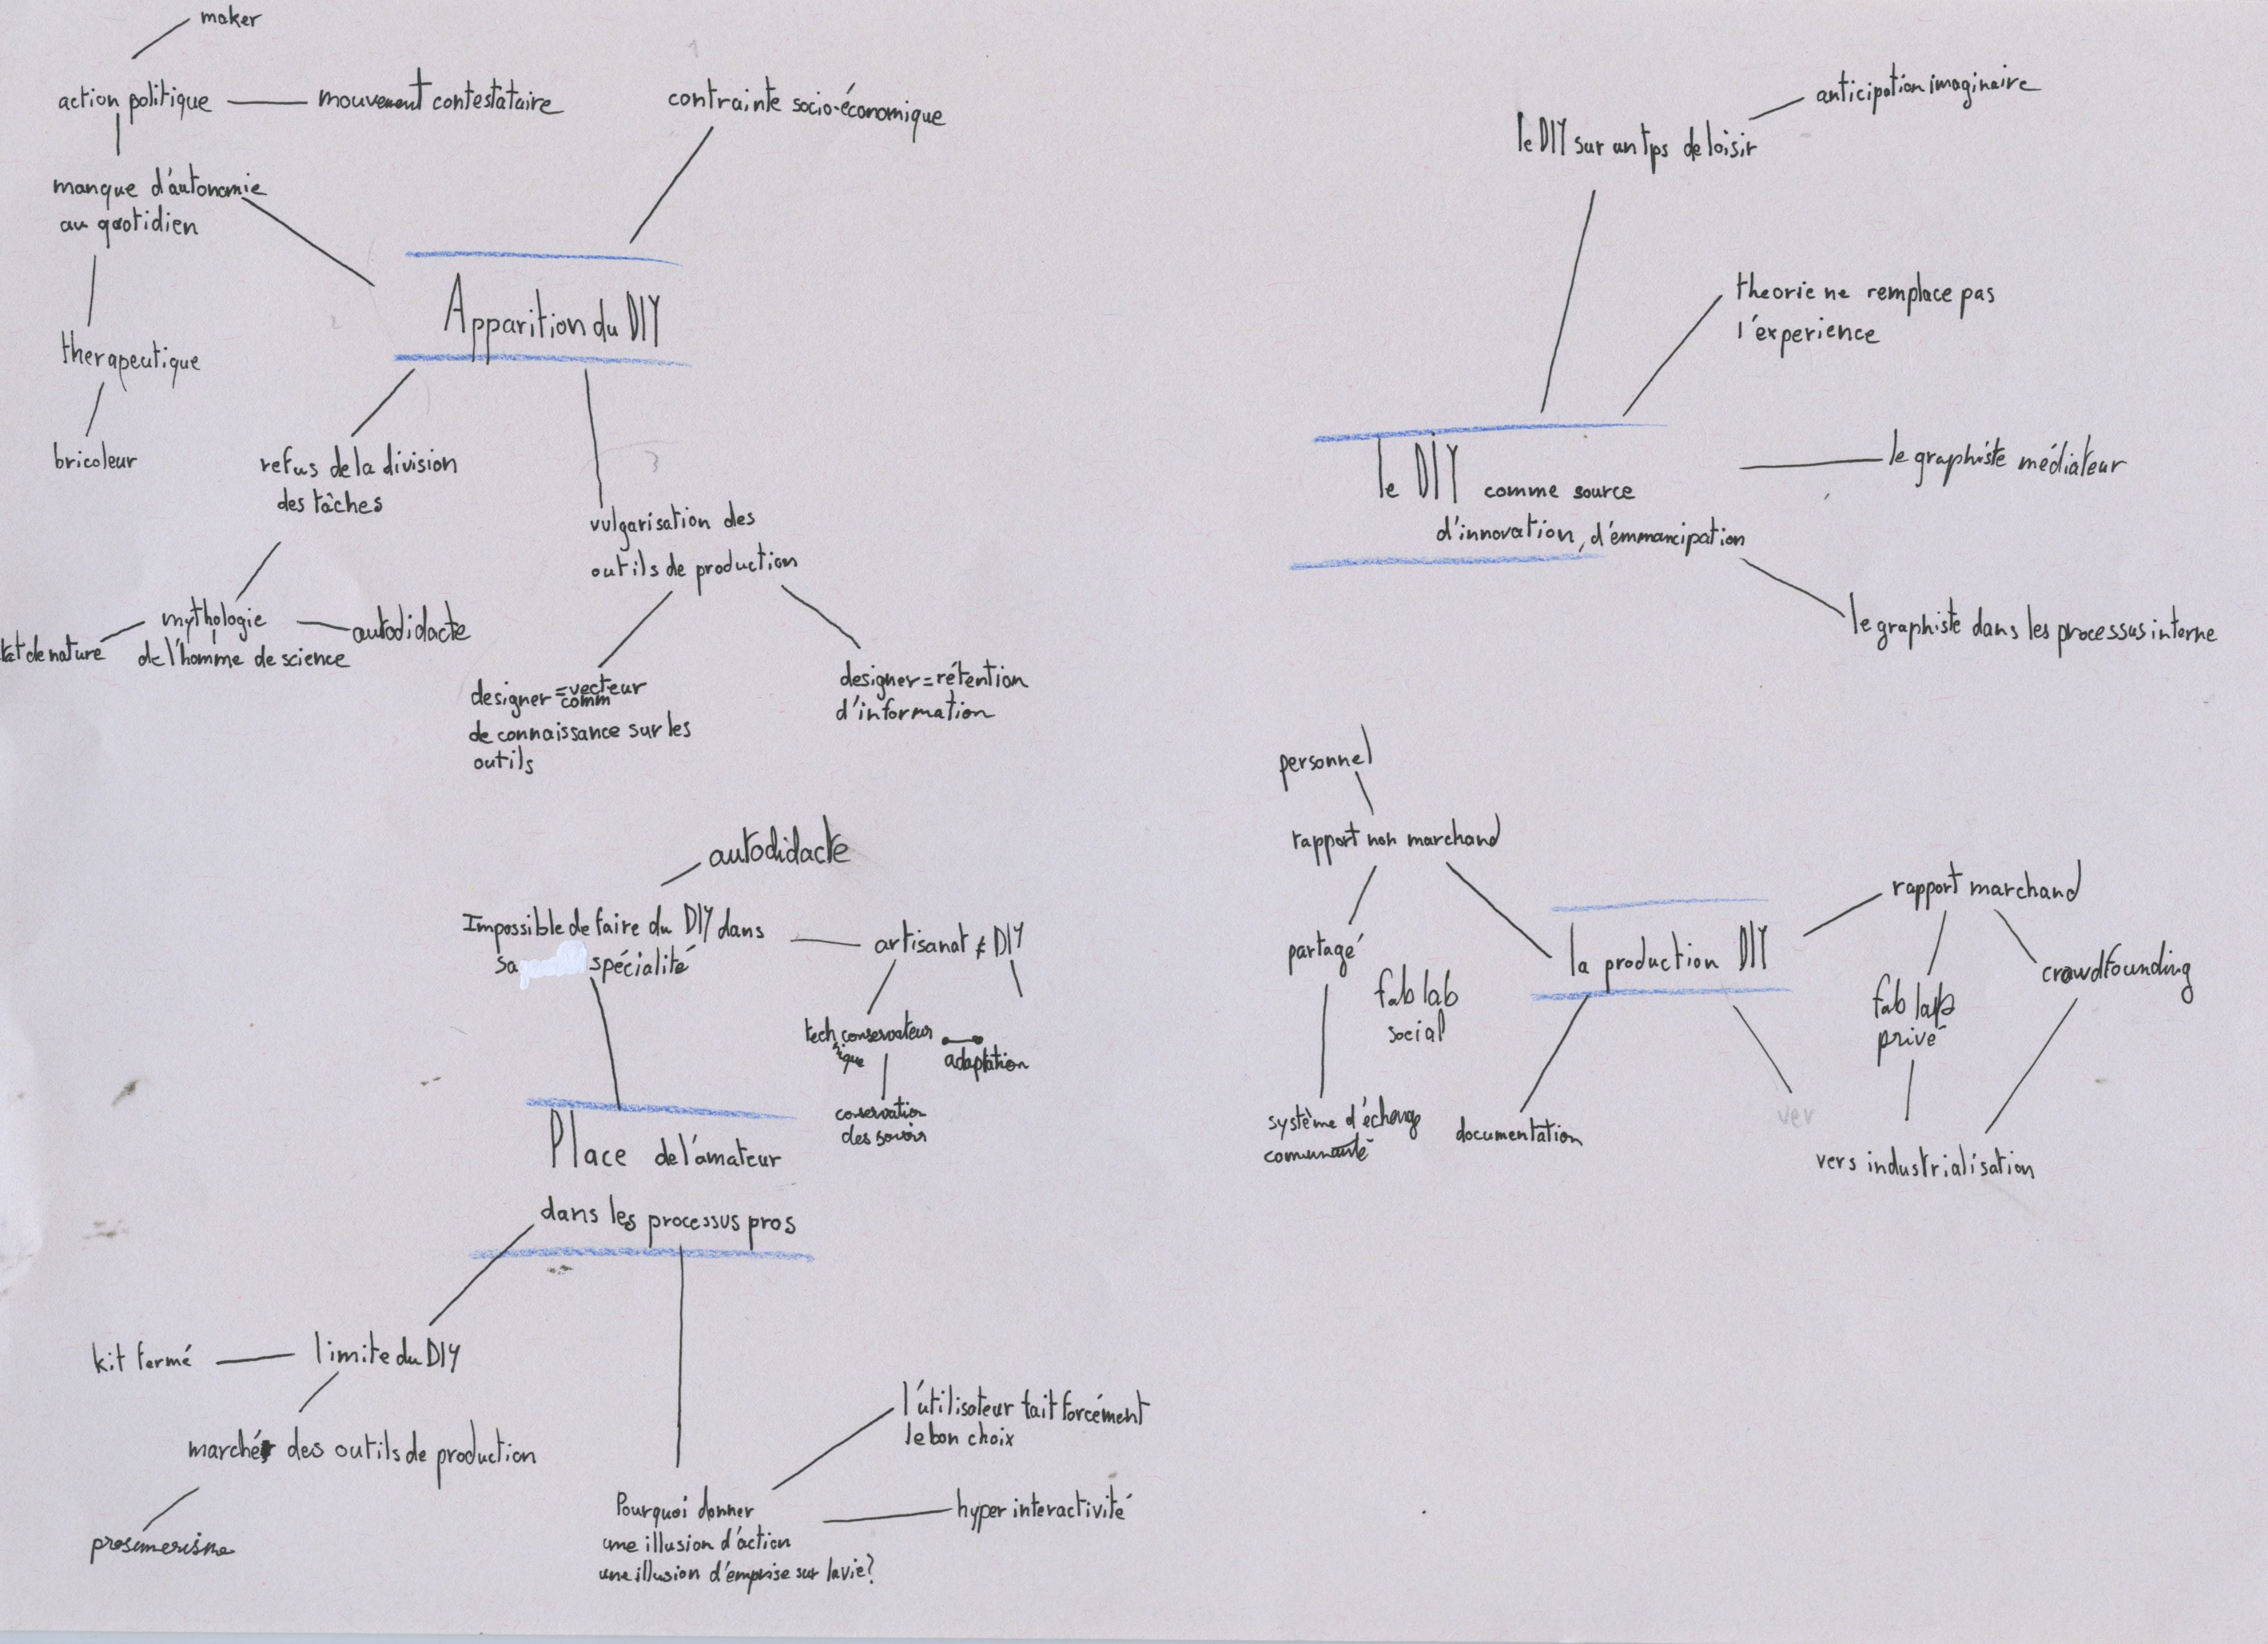 maker
action politique
mouvement contestataire
contrainte socio-économique
manque d'autonomie
au quotidien
Apparition du DIY
therapeutique
bricoleur
refus de la division
des tâches
vulgarisation des
outils de production
mythologie
de l'homme de science
autodidacte
tat de nature
designer = vecteur
comm
de connaissance sur les
outils
designer = rétention
d'information
anticipation imaginaire
le DIY sur un tps de loisir
theorie ne remplace pas
l'experience
le DIY comme source
d'innovation, d'emmancipation
le graphiste médiateur
le graphiste dans les processus interne
autodidacte
Impossible de faire du DIY dans
sa spécialité
artisanat ≠ DIY
tech conservateur
ique
adaptation
conservation
des savoirs
Place de l'amateur
dans les processus pros
kit fermé
limite du DIY
marché des outils de production
prosumerisme
l'utilisateur fait forcément
le bon choix
Pourquoi donner
une illusion d'action
une illusion d'emprise sur la vie?
hyper interactivité
personnel
rapport non marchand
partagé
fab lab
social
système d'échange
communauté
la production DIY
documentation
rapport marchand
fab lab
privé
crowdfounding
ver
vers industrialisation